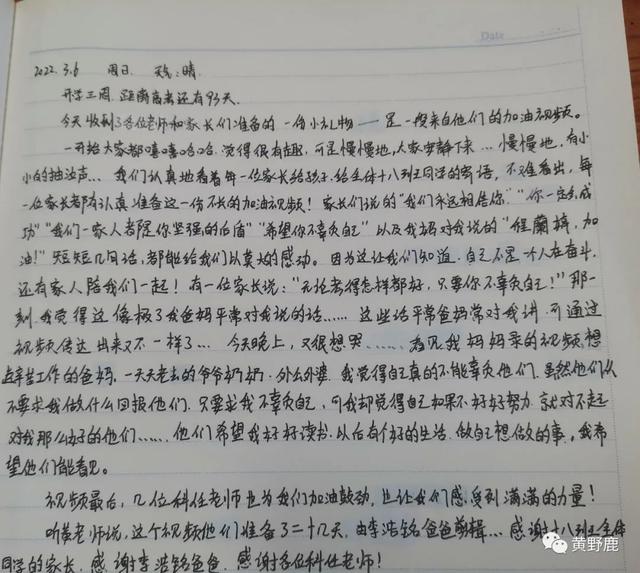 Date
2022. 3.6 周日. 天气:晴.
开学三周. 距离高考还有93天.
今天收到了各位老师和家长们准备的一份小礼物——是一段来自他们的加油视频。
一开始大家都嘻嘻哈哈. 觉得很有趣, 可是慢慢地,大家安静下来…慢慢地, 有小
小的抽泣声… 我们认真地看着每一位家长给孩子.给全体十八班同学的寄语, 不难看出, 每
一位家长都有认真准备这一份不长的加油视频! 家长们说的“我们永远相信你”“你一定能成
功”“我们一家人都是你坚强的后盾”“希望你不辜负自己”以及我妈对我说的“程蘭婷, 加
油!” 短短几句话, 都能给我们以莫大的感动。因为这让我们知道. 自己不是一个人在奋斗.
还有家人陪我们一起! 有一位家长说:“无论考得怎样都好, 只要你不辜负自己!” 那一
刻. 我觉得这像极了我爸妈平常对我说的话…… 这些话平常爸妈常对我讲. 可通过
视频传达出来又不一样了… 今天晚上, 又很想哭…… 看见我妈妈录的视频, 想
起辛苦工作的爸妈. 一天天老去的爷爷奶奶. 外公外婆. 我觉得自己真的不能辜负他们. 虽然他们从
不要求我做什么回报他们. 只要求我不辜负自己, 可我却觉得自己如果不好好努力. 就对不起
对我那么好的他们…… 他们希望我好好读书. 以后有个好的生活. 做自己想做的事。我希
望他们能看见。
视频最后, 几位科任老师也为我们加油鼓劲, 也让我们感受到满满的力量!
听老师说, 这个视频他们准备了二十几天, 由李浩铭爸爸剪辑… 感谢十八班全体
同学的家长. 感谢李浩铭爸爸. 感谢各位科任老师!
黄野鹿